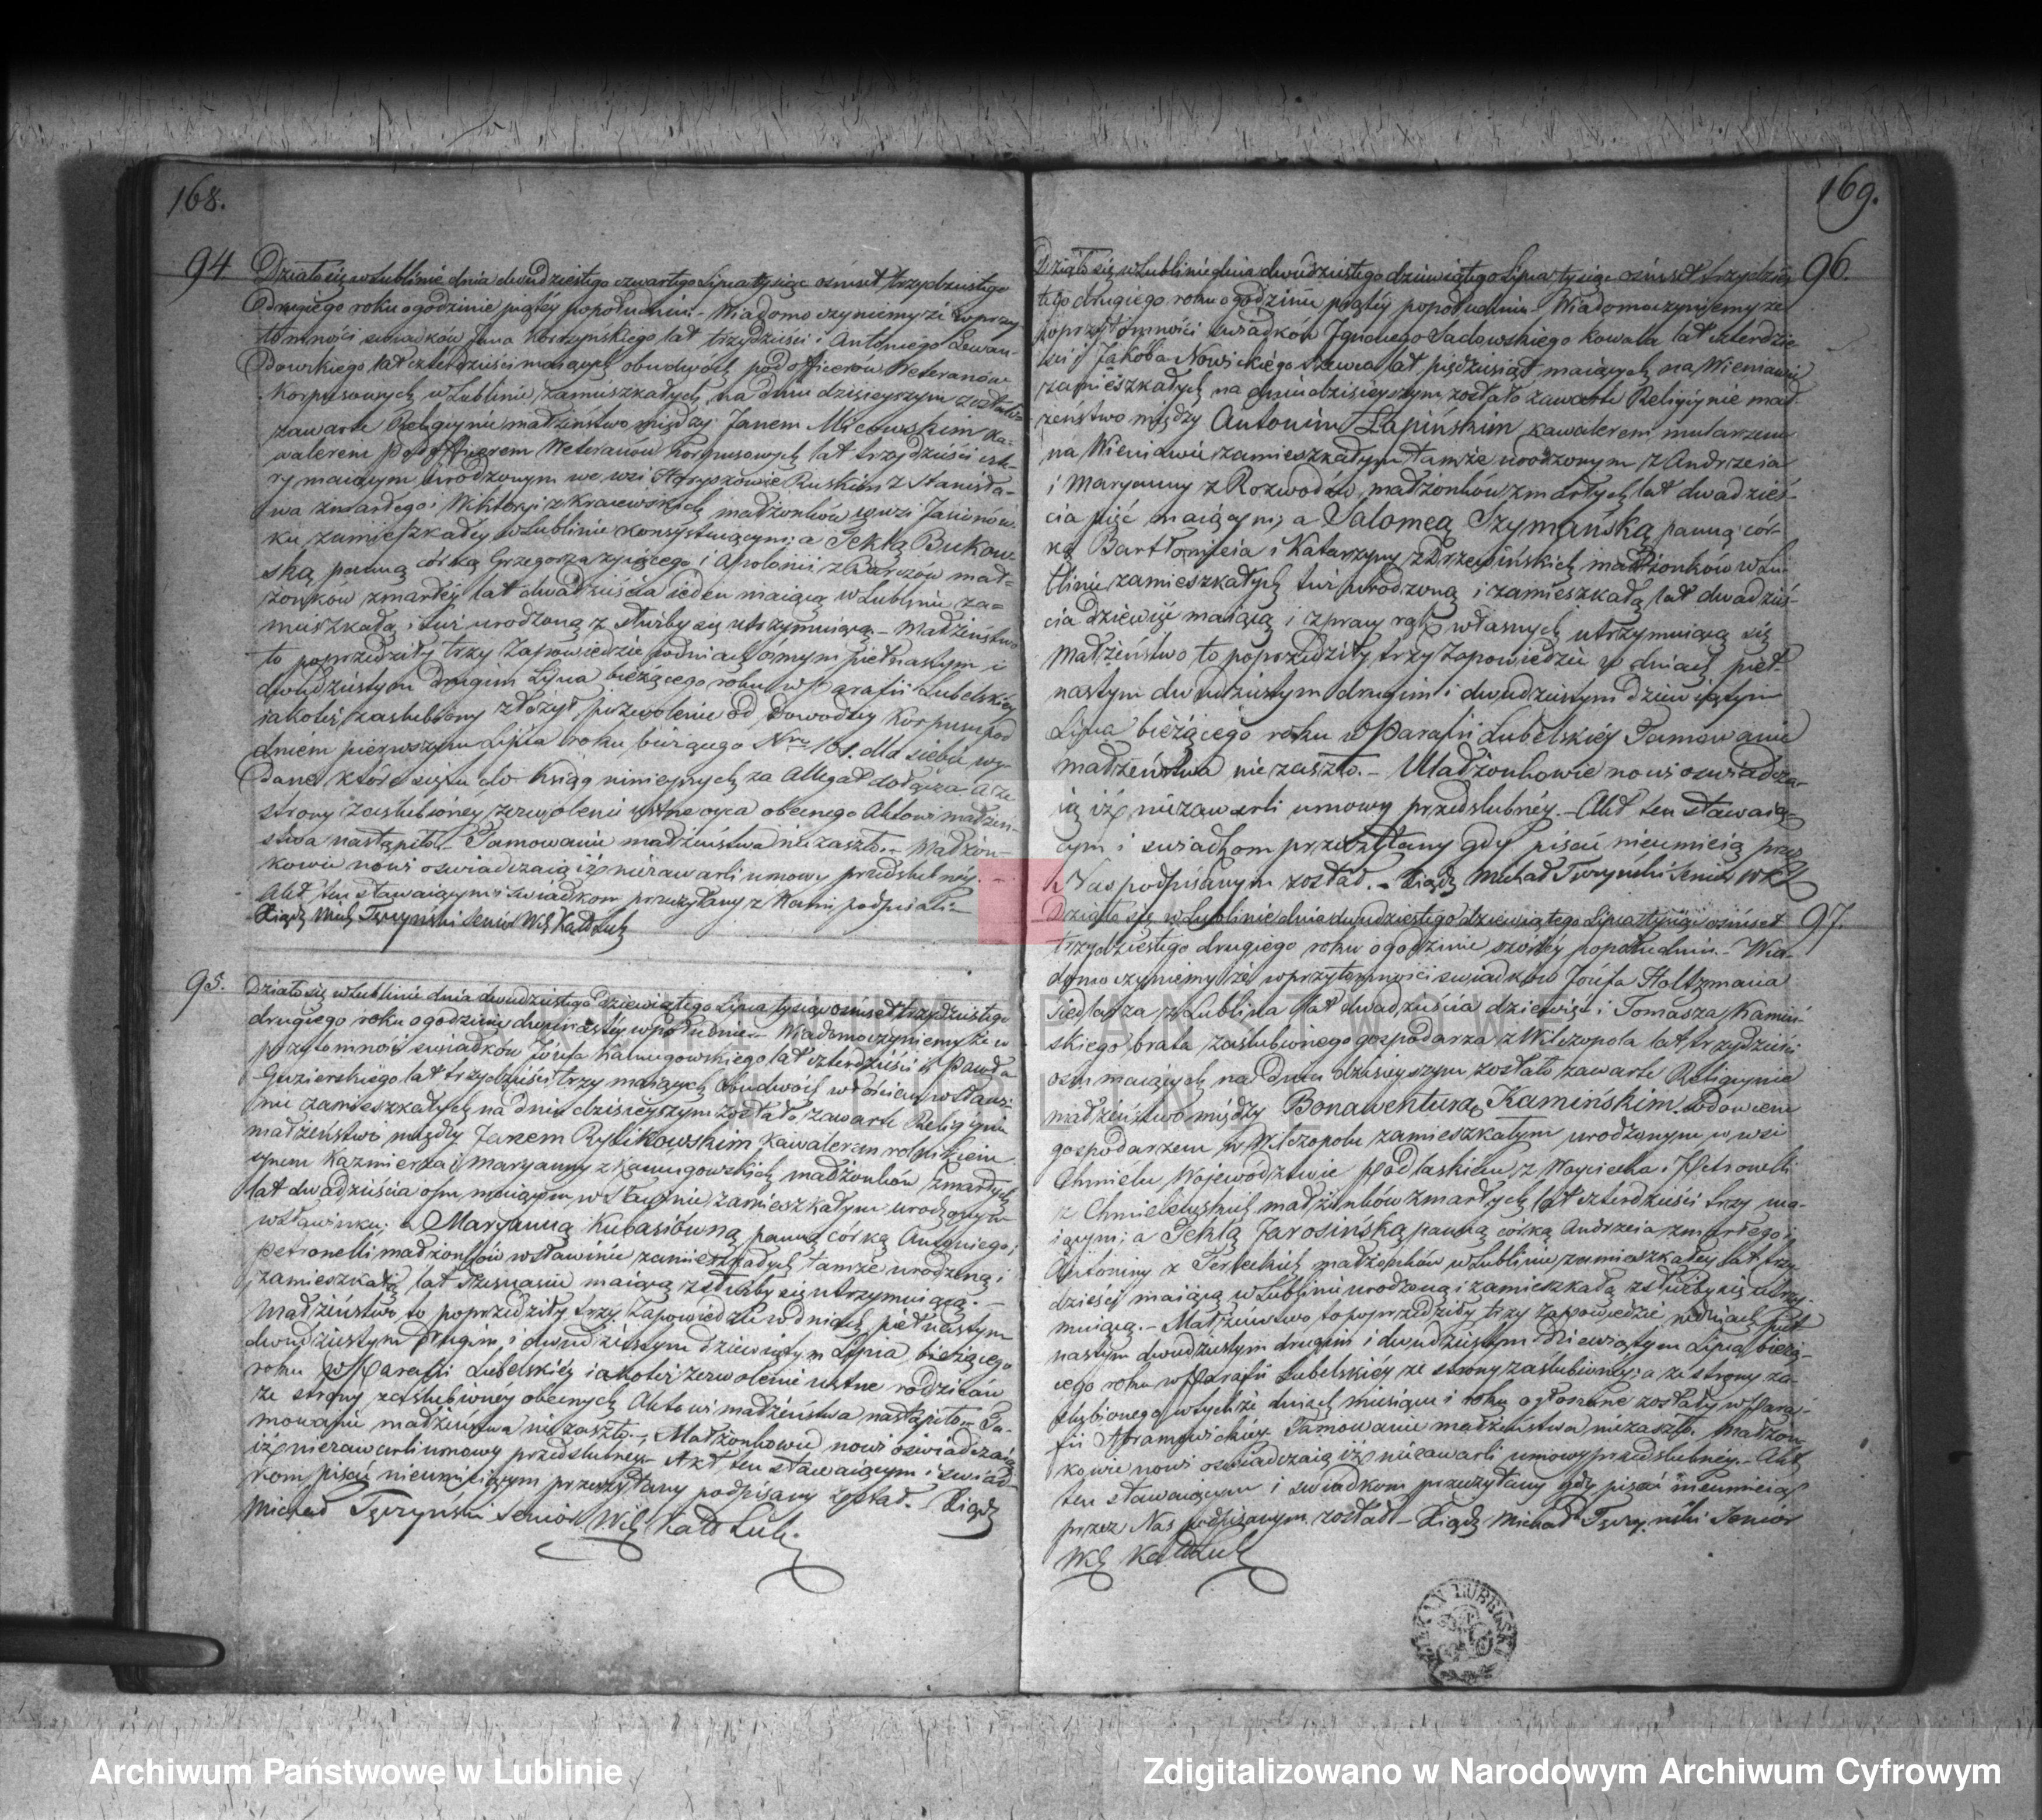 168.
94
Działo się w Lublinie dnia dwudziestego czwartego Lipca tysiąc ośmset trzydziestego
drugiego roku o godzinie piątey popołudniu. - Wiadomo czyniemy że w przy-
tomności swiadków Jana Korzyńskiego lat trzydzieści i Antoniego Lewan-
dowskiego lat czterdzieści maiących obudwóch podofficerów Weteranów
Korpusowych w Lublinie zamieszkałych na dniu dzisieyszym zostało
zawarte Religiynie małżeństwo między Janem Micewskim Ka-
walerem podofficerem Weteranów Korpusowych lat trzydzieści czte-
ry maiącym urodzonym we wsi Ruskim z Stanisła-
wa zmarłego i Wiktoryi z Kraiewskich małżonków w wsi Jasionów-
ku zamieszkałey w Lublinie konsystuiącym; a Teklą Bukow-
ską panną córką Grzegorza żyiącego i Apolonii z małż-
żonków zmarłey lat dwadzieścia ieden maiącą w Lublinie za-
mieszkałą i tu urodzoną z służby się utrzymuiącą. - Małżeństwo
to poprzedziły trzy Zapowiedzie w dniach osmym piętnastym i
dwudziestym drugim Lipca bieżącego roku w Parafii Lubelskiey
iakoteż zaślubiony złożył pozwolenie od Dowodzcy Korpusu pod
dniem pierwszym Lipca roku bieżącego Nro 161. dla siebie wy-
dane, które się tu do Ksiąg ninieyszych za Allegat dołącza a ze
strony zaślubioney zezwolenie ustne oyca obecnego Aktowi małżeń-
stwa nastąpiło. - Tamowanie małżeństwa nie zaszło. - Małżon-
kowie nowi oswiadczaią iż nie zawarli umowy przedslubney. -
Akt ten stawaiącym i swiadkom przeczytany z Nami podpisali. -
Xiądz Mich Tęczynski Senior Wik Kat Lub
95.
Działo się w Lublinie dnia dwudziestego dziewiątego Lipca tysiąc ośmset trzydziestego
drugiego roku o godzinie dwunastey w południe. - Wiadomo czyniemy że w
przytomności swiadków Józefa lat czterdzieści i Pawła
Guzierskiego lat trzydzieści trzy maiących obudwóch włościan w Sławi-
nie zamieszkałych na dniu dzisieyszym zostało zawarte Religiynie
małżeństwo między Janem Rysikowskim Kawalerem rolnikiem
synem Kazmierza i Maryanny z małżonków zmarłych
lat dwadzieścia ośm maiącym w Sławinie zamieszkałym urodzonym
w Sławinku; a Maryanną Kubasiówną panną córką Antoniego i
Petronelli małżonków w Sławinie zamieszkałych tamże urodzoną i
zamieszkałą lat szesnaście maiącą z służby się utrzymuiącą. -
Małżeństwo to poprzedziły trzy Zapowiedzie w dniach piętnastym
dwudziestym drugim i dwudziestym dziewiątym Lipca bieżącego
roku w Parafii Lubelskiey iakoteż zezwolenie ustne rodziców
ze strony zaślubioney obecnych Aktowi małżeństwa nastąpiło. - Ta-
mowanie małżeństwa nie zaszło. - Małżonkowie nowi oswiadczaią
iż nie zawarli umowy przedslubney. - Akt ten stawaiącym i swiad-
kom pisać nieumieiącym przeczytany podpisany został. - Xiądz
Michał Tęczynski Senior Wik Kat Lub.
169.
96.
Działo się w Lublinie dnia dwudziestego dziewiątego Lipca tysiąc ośmset trzydzies-
tego drugiego roku o godzinie piątey popołudniu - Wiadomo czyniemy że
w przytomności swiadków Ignacego Sadowskiego kowala lat czterdzie-
ści i Jakóba Nowickiego szewca lat pięćdziesiąt maiących na Wieniawie
zamieszkałych na dniu dzisieyszym zostało zawarte Religiynie mał-
żeństwo między Antonim Łapińskim kawalerem mularzem
na Wieniawie zamieszkałym tamże urodzonym z Andrzeia
i Maryanny z Rozwodów małżonków zmarłych lat dwadzieś-
cia pięć maiącym; a Salomeą Szymańską panną cór-
ką Bartłomieia i Katarzyny z Brzezińskich małżonków w Lu-
blinie zamieszkałych tu urodzoną i zamieszkałą lat dwadzieś-
cia dziewięć maiącą i z pracy rąk własnych utrzymuiącą się
Małżeństwo to poprzedziły trzy Zapowiedzie w dniach pięt-
nastym dwudziestym drugim i dwudziestym dziewiątym
Lipca bieżącego roku w Parafii Lubelskiey Tamowanie
małżeństwa nie zaszło. - Małżonkowie nowi oswiadcza-
ią iż nie zawarli umowy przedslubney. - Akt ten stawaią-
cym i swiadkom przeczytany gdy pisać nieumieią przez
Nas podpisanym został. - Xiądz Michał Tęczyński Senior WK
97.
Działo się w Lublinie dnia dwudziestego dziewiątego Lipca tysiąc ośmset
trzydziestego drugiego roku o godzinie szóstey popołudniu. - Wia-
domo czyniemy że w przytomności swiadków Józefa Holtzmana
Siedlarza z Lublina lat dwadzieścia dziewięć i Tomasza Kamiń-
skiego brata zaslubionego gospodarza z Wilczopola lat trzydzieści
ośm maiących na dniu dzisieyszym zostało zawarte Religiynie
małżeństwo między Bonawenturą Kamińskim wdowcem
gospodarzem w Wilczopolu zamieszkałym urodzonym w wsi
Chmielu Wojewodztwie Podlaskiem z Woyciecha i Petronelli
z Chmielewskich małżonków zmarłych lat czterdzieści trzy ma-
iącym; a Teklą Jarosińską panną córką Andrzeia zmarłego i
Antoniny z Terleckich małżonków w Lublinie zamieszkałey lat trzy-
dzieści maiącą w Lublinie urodzoną i zamieszkałą z służby się utrzy-
muiącą. - Małżeństwo to poprzedziły trzy Zapowiedzie w dniach pięt-
nastym dwudziestym drugim i dwudziestym dziewiątym Lipca bieżą-
cego roku w Parafii Lubelskiey ze strony zaślubioney; a ze strony za-
ślubionego w tychże dniach miesiącu i roku ogłoszone zostały w Para-
fii Abramowickiey. Tamowanie małżeństwa nie zaszło. Małżon-
kowie nowi oswiadczaią iż nie zawarli umowy przedslubney. - Akt
ten stawaiącym i swiadkom przeczytany gdy pisać nieumieią
przez Nas podpisanym został - Xiądz Michał Tęczyński Senior
Wik Kat Lub
Archiwum Państwowe w Lublinie
Zdigitalizowano w Narodowym Archiwum Cyfrowym